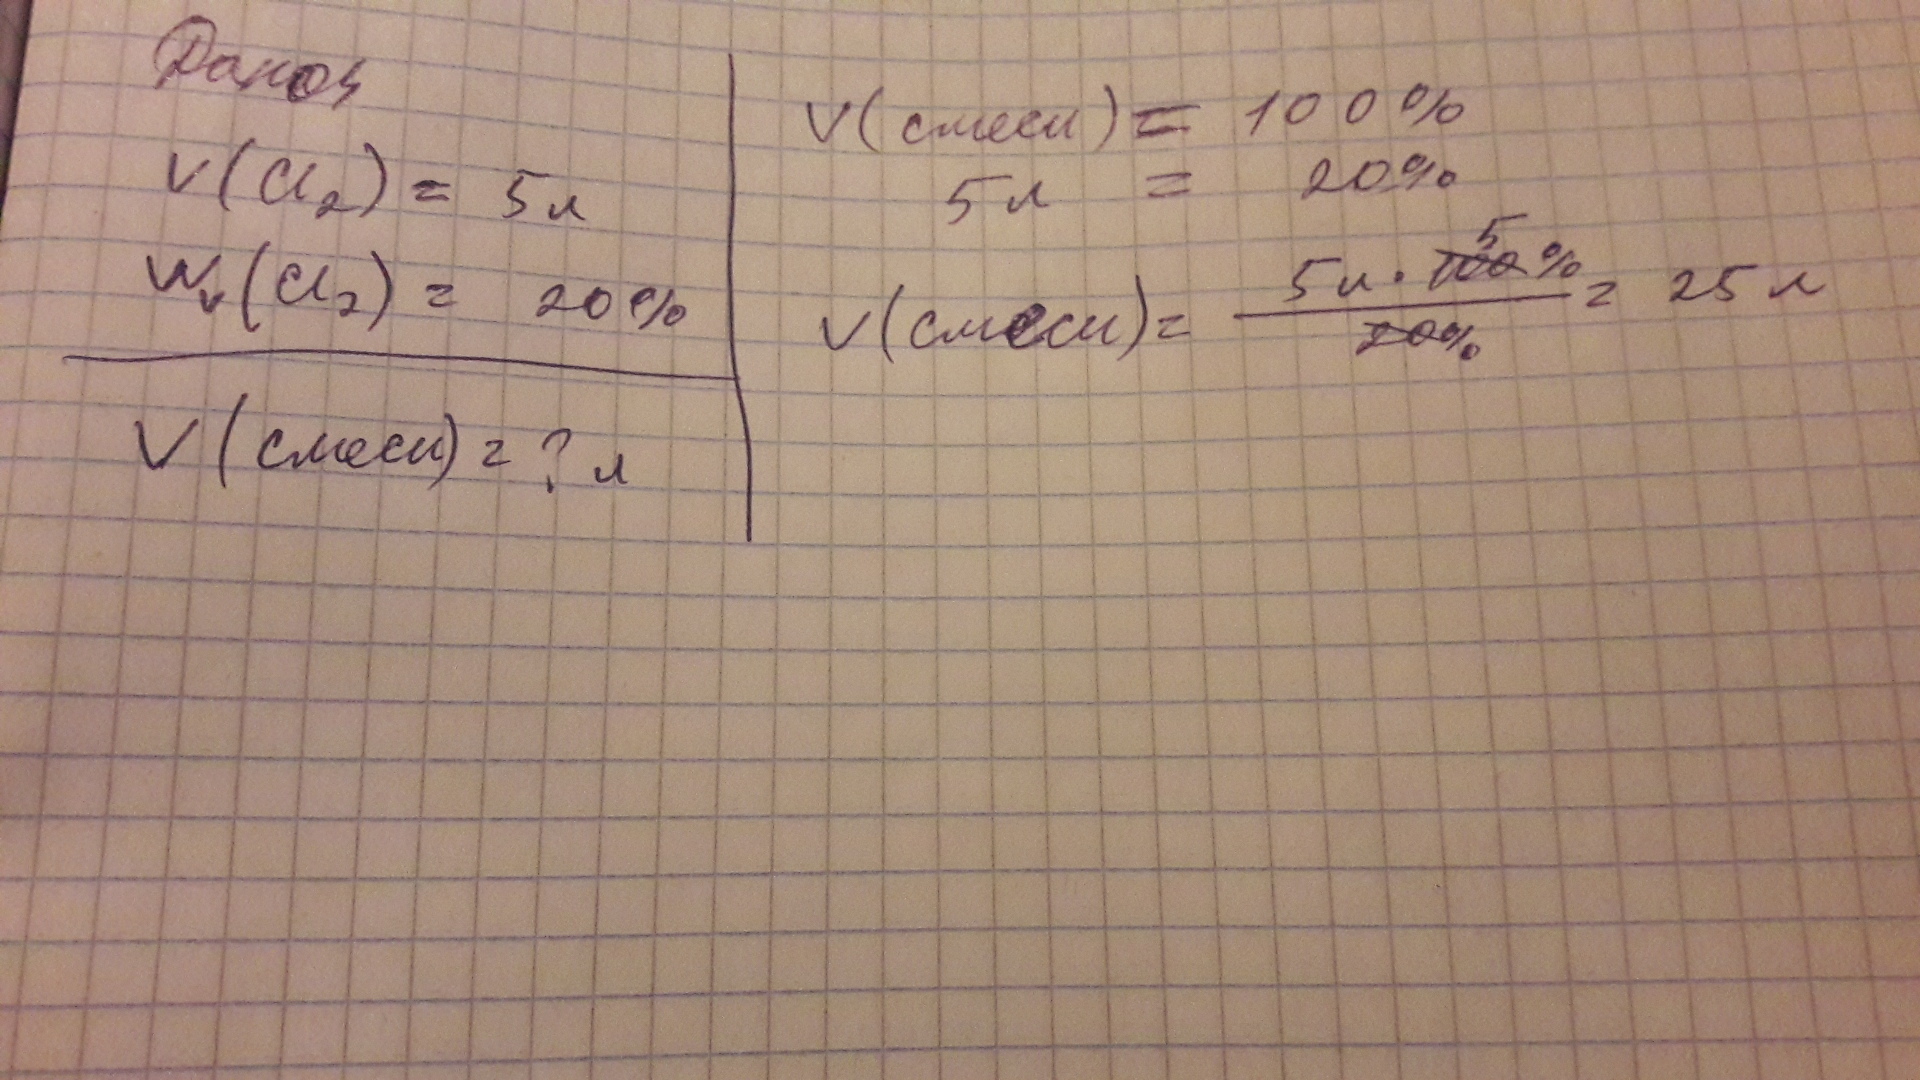 Дано:
V(Cl₂) = 5л
Wᵥ(Cl₂) = 20%
V(смеси) = ? л
V(смеси) = 100%
5л = 20%
V(смеси) = 5л · 100% 5 / 20% = 25 л